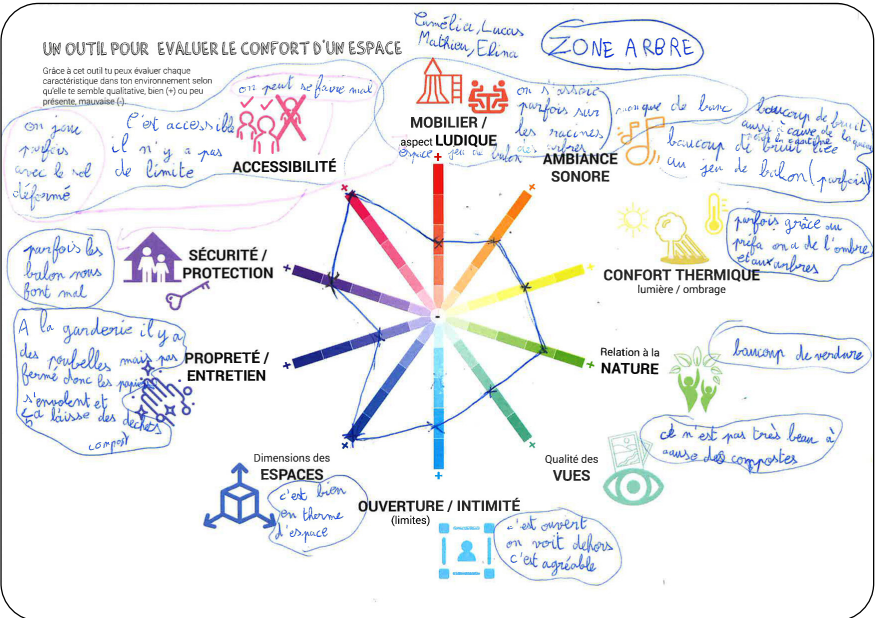 Camélia, Lucas
Mathieu, Elina
ZONE ARBRE
UN OUTIL POUR EVALUER LE CONFORT D'UN ESPACE
Grâce à cet outil tu peux évaluer chaque
caractéristique dans ton environnement selon
qu'elle te semble qualitative, bien (+) ou peu
présente, mauvaise (-).
on peut se faire mal
ACCESSIBILITÉ
c'est accessible
il n'y a pas
de limite
on joue
parfois
avec le sol
déformé
MOBILIER /
aspect LUDIQUE
espace jeu de balon
on s'assoie
parfois sur
les racines
des arbres
manque de banc
AMBIANCE
SONORE
baucoup de bruit
aussi à cause de la queue
pour la cantine
baucoup de bruit liée
au jeu de balon (parfois)
CONFORT THERMIQUE
lumière / ombrage
parfois grâce au
préfa on a de l'ombre
et aux arbres
Relation à la
NATURE
baucoup de verdure
Qualité des
VUES
ce n'est pas très beau à
cause des compostes
OUVERTURE / INTIMITÉ
(limites)
c'est ouvert
on voit dehors
c'est agréable
Dimensions des
ESPACES
c'est bien
en therme
d'espace
PROPRETÉ /
ENTRETIEN
A la garderie il y a
des poubelles mais pas
fermé donc les papiers
s'envolent et
ça laisse des déchets
compost
SÉCURITÉ /
PROTECTION
parfois les
balon nous
font mal